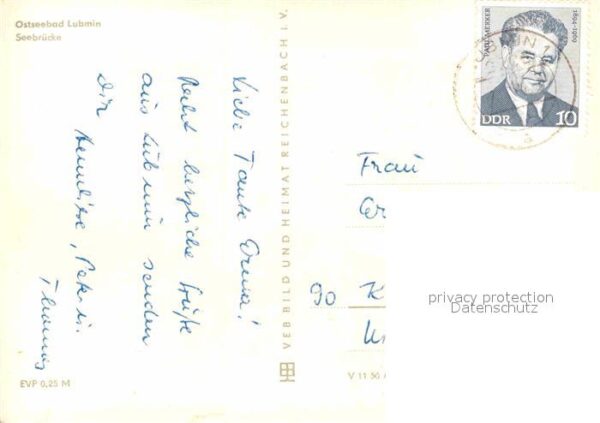 Ostseebad Lubmin
Seebrücke
Liebe Tante Erna!
Recht herzliche Grüße
aus Lubmin senden
Dir
Peter u.
Thomas
EVP 0,25 M
VEB BILD UND HEIMAT REICHENBACH i. V.
V 11 50
PAUL MERKER
1894-1969
DDR 10
LUBMIN
Frau
90
privacy protection
Datenschutz